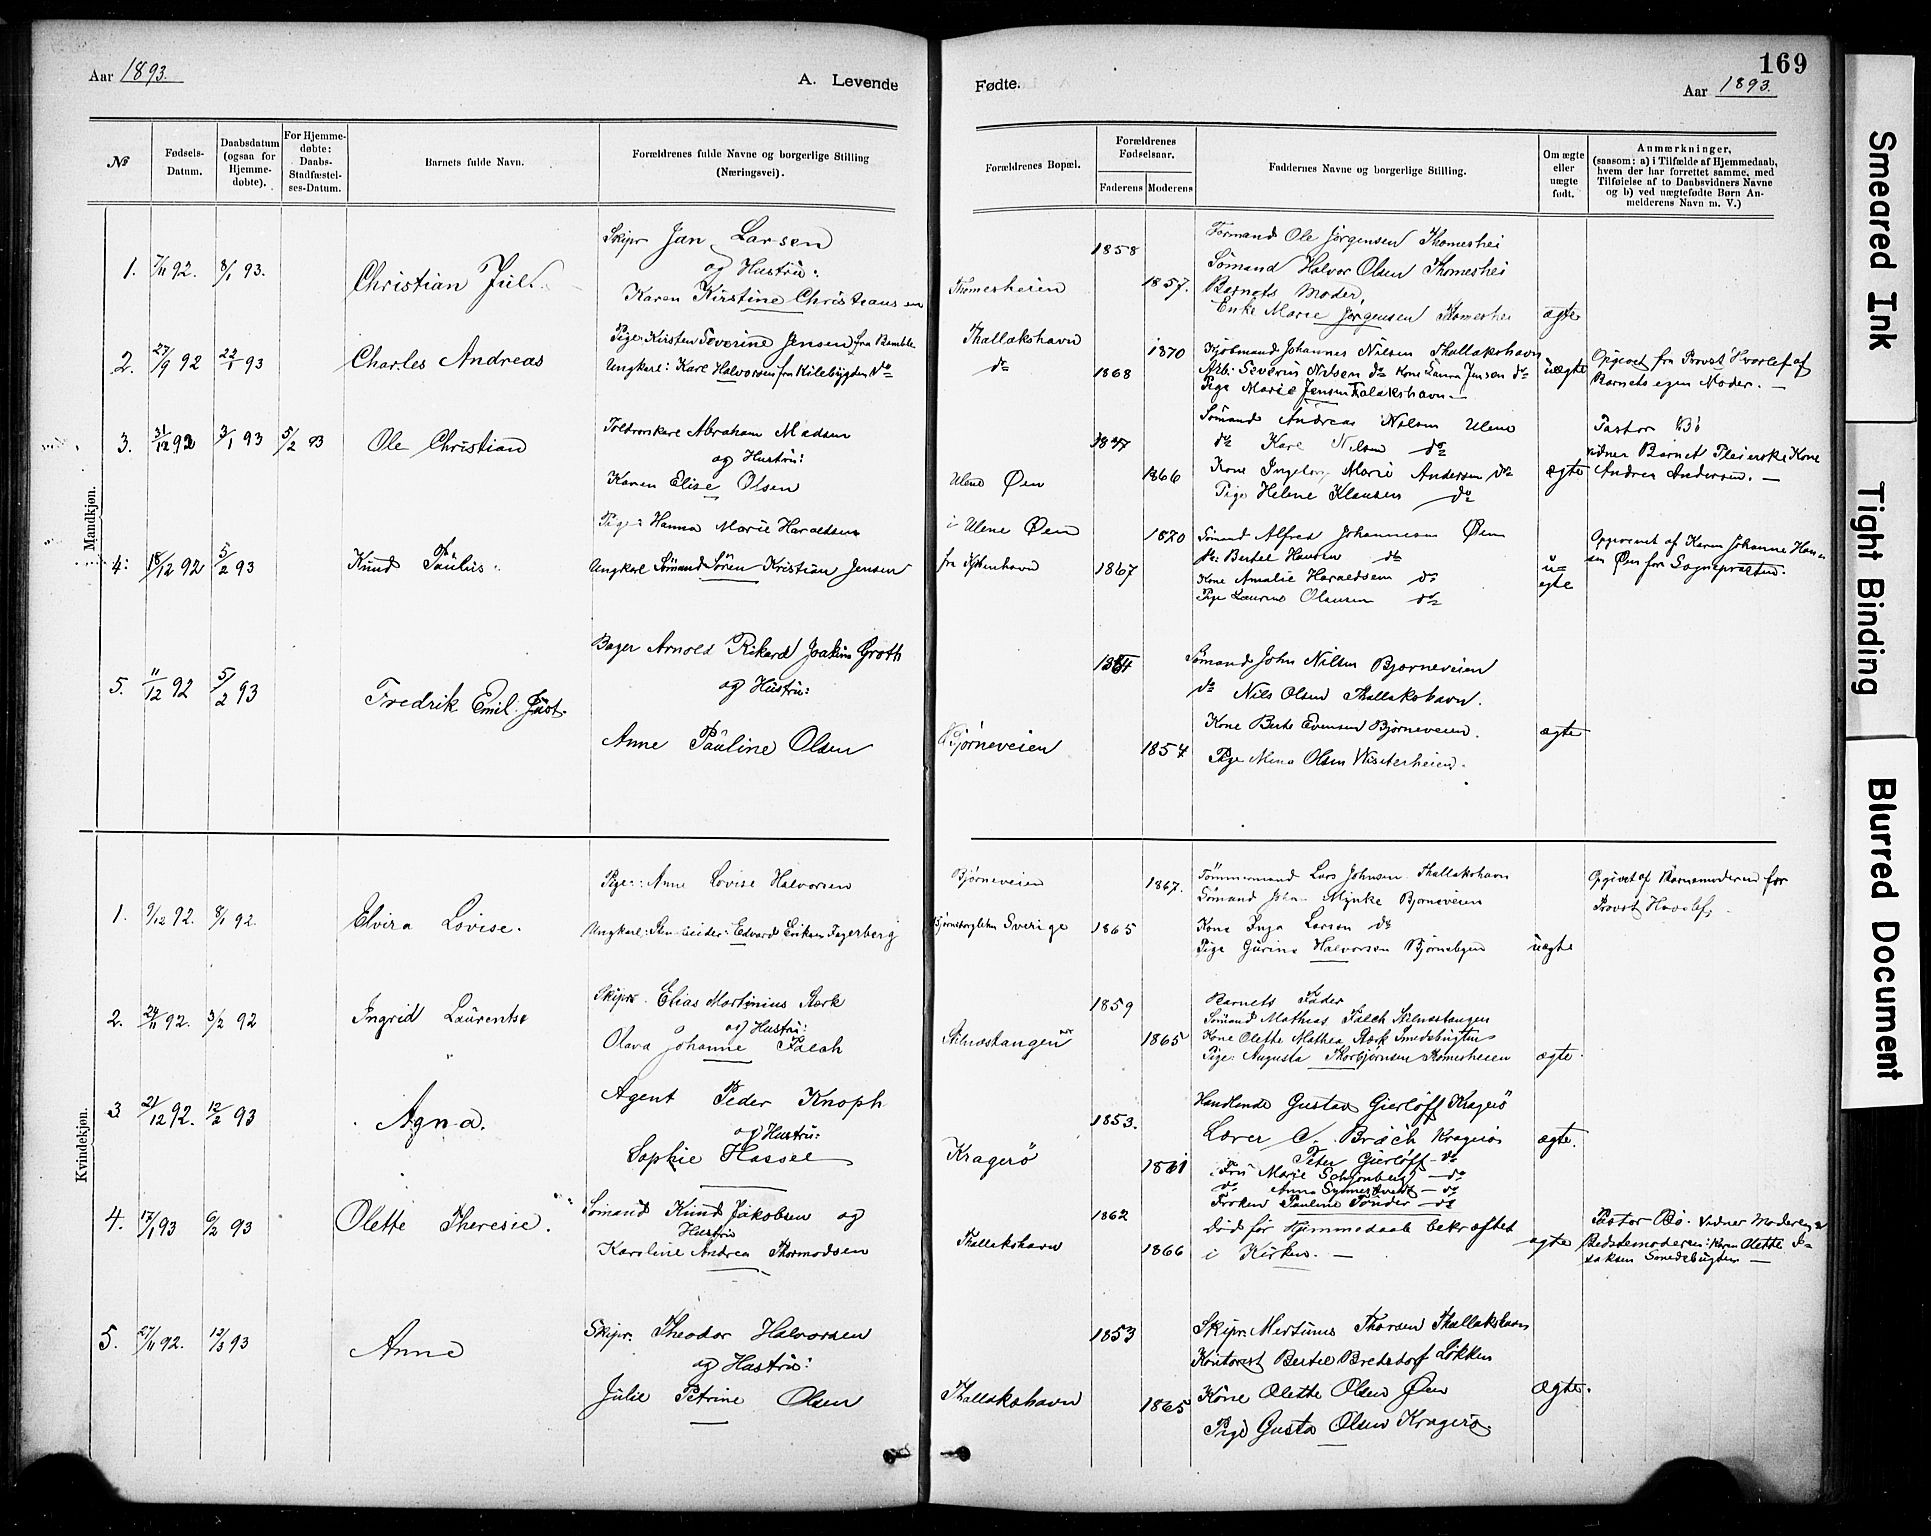 Aar 1893.
A. Levende
№
Fødsels-Datum.
Daabsdatum (ogsaa for Hjemme-døbte).
For Hjemme-døbte: Daabs-Stadfæstel-ses-Datum.
Barnets fulde Navn.
Forældrenes fulde Navne og borgerlige Stilling
(Næringsvei).
Mandkjøn.
Skipr Jan Larsen
1. 7/11 92. 8/1 93. Christian Juel og Hustru:
Karen Kirstine Christiansen
Pige: Kirsten Severine Jensen fra Bamble
2. 27/9 92 22/1 93 Charles Andreas
Ungkarl: Karl Halvorsen fra Kilebygden do
Abraham Madsen
3. 31/12 92 3/1 93 5/2 93 Ole Christian og Hustru:
Karen Elise Olsen
Pige: Hanna Marie Haraldsen
4: 18/12 92 5/2 93 Knud Paulus. Ungkarl Sömand Sören Kristian Jensen
Bager Arnold Rikard Joakim Groth
5. 11/12 92 5/2 93 Fredrik Emil og Hustru:
Anne Pauline Olsen
Kvindekjøn.
Pige: Anne Lovise Halvorsen
1. 9/12 92. 8/1 92. Elvira Lovise.
Ungkarl: Edvard Eriksen Fagerberg
Skipr. Elias Martinius Stærk
2. 24/11 92. 3/2 92 Ingrid Laurentse og Hustru:
Olava Johanne Falch
Agent Peder Knoph
3 21/12 92. 12/2 93 Agna. og Hustru:
Sophie Hassel
4. 17/1 93 6/2 93 Olette Theresie. Sömand Knud Jakobsen og
Hustru
Karoline Andrea Thormodsen
Skipr. Theodor Halvorsen
5. 27/11 92. 12/3 93 Anne og Hustru:
Julie Petrine Olsen
169
Fødte.
Aar 1893.
Forældrenes Bopæl.
Forældrenes Fødselsaar.
Faderens Moderens
Faddernes Navne og borgerlige Stilling.
Om ægte eller uægte født.
Anmærkninger,
(saasom: a) i Tilfælde af Hjemmedaab,
hvem der har forrettet samme, med
Tilføielse af to Daabsvidners Navne
og b) ved uægtefødte Børn An-
melderens Navn m. V.)
Formand Ole Jörgensen Thomeshei
1858 Sömand Halvor Olsen Thomeshei
Thomesheien 1857. Barnets Moder,
Enke Marie Jörgensen Thomeshei ægte
Thallakshavn 1870 Kjöbmand Johannes Nilsen Thallakshavn
do 1868 Arb. Severin Nilsen do Kone Laura Jensen do uægte
Pige Marie Jensen Talakshavn.—
Opgivet fra Provst Hvoslef af
Barnets egen Moder. —
Sömand Andreas Nilsen Ulenø
do Karl Nilsen do
Ulenø Øen 1866 Kone Ingeborg Marie Andersen do ægte
Pige Helene Klausen do
Pastor Bö
vidner Barnet Pleierske Kone
Andrea Andersen. —
i Ulene Øen 1870 Sömand Alfred Johannesen Øen
do: Bertel Hansen do
fra Kjöbenhavn 1867 Kone Amalie Haraldsen do u-
ægte
Pige Laurine Olausen do
af Karen Johanne Han-
sen Øen for Sognepræsten.
Sömand John Nilsen Bjorneveien
do Nils Olsen Thallakshavn.
Kone Berte Evensen Bjørneveien. ægte
Bjørneveien 1854 Pige Mina Olsen
Bjørneveien 1867. Tömmermand Lars Johnsen Thallakshavn
Sömand Johan Mynke Bjorneveien
Sverige 1865 Kone Inga Larsen do
Pige Gurine Halvorsen uægte
Opgivet af Barnemoderen for
Provst Hvoslef.
1859 Barnets Fader
Sömand Mathias Falch Stilnestangen
Stilnestangen 1865 Kone Olette Mathea Stærk Smedsbugten
Pige: Augusta Thorbjørnsen Thomesheien ægte.
Handlende Gustav Gierløff Kragerö
1853. Lærer C. Bräch Kragerö ægte.
Kragerö 1861 Peter Gierløff do
Fru Marie Schjonberg — do
do Anna Synnestvedt — do
Froken Pauline Tönder — do
1862 Död før Hjemmedaab bekræftet
Thallakshavn 1866 i Kirken. — ægte
Pastor Bö. Vidner Moderen &
Bedstemoderen: Karen Olette I-
saksen Smedsbugten —
1853 Skipr. Thorsen Thallakshavn
Kontorist Bertel Bredsdorf Løkken
Thallakshavn 1865 Kone Olette Olsen Øen ægte.
Pige Gusta Olsen Kragerö.
Smeared Ink
Tight Binding
Blurred Document